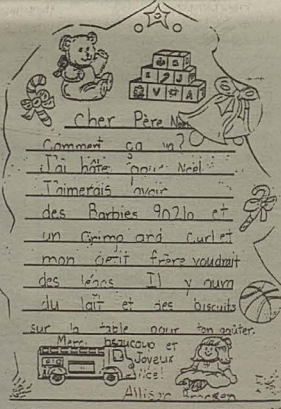 Cher Père Noël
Comment ça va?
J'ai hâte pour Noël.
J'aimerais avoir
des Barbies 90210 et
un Crimp and Curl et
mon petit frère voudrait
des légos. Il y aura
du lait et des biscuits
sur la table pour ton goûter.
Merci beaucoup et
Joyeux
Allison